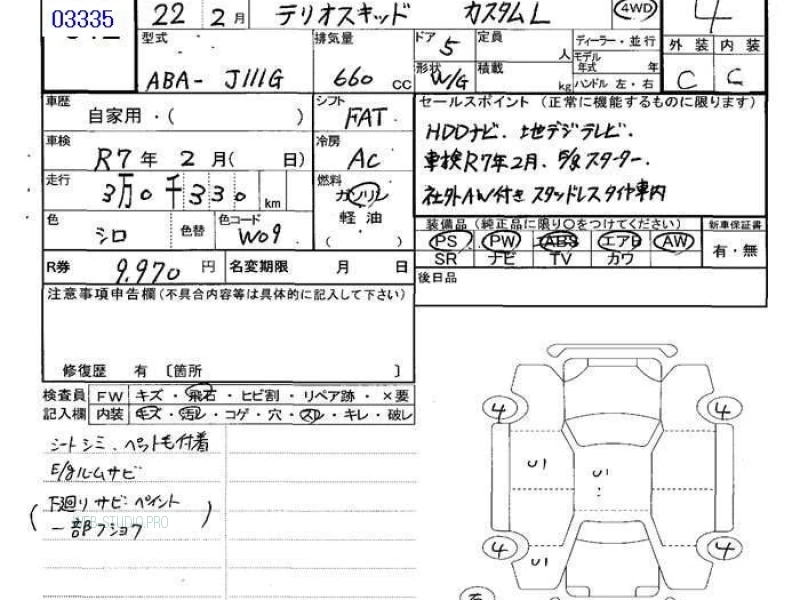 03335
22 2月 テリオスキッド カスタムL 4WD 4
型式 ABA- J111G 排気量 660 cc ドア 5 定員 人 ディーラー・並行
形状 W/G 積載 kg モデル年式 年 ハンドル 左・右
外装 内装
C C
車歴 自家用・( )
シフト FAT
車検 R7年 2月( 日)
冷房 AC
走行 3万0千330 km
燃料 ガソリン 軽油 ( )
色 シロ 色替 色コード W09
R券 9,970 円 名変期限 月 日
セールスポイント (正常に機能するものに限ります)
HDDナビ. 地デジテレビ.
車検R7年2月. E/gスターター.
社外AW付き スタッドレスタイヤ車内
装備品(純正品に限り○をつけてください) 新車保証書
PS PW ABS エアB AW 有・無
SR ナビ TV カワ
後日品
注意事項申告欄(不具合内容等は具体的に記入して下さい)
修復歴 有 〔箇所 〕
検査員 FW キズ・飛石・ヒビ割・リペア跡・×要
記入欄 内装 キズ・汚レ・コゲ・穴・スレ・キレ・破レ
シートシミ. ペット毛付着
E/gルームサビ
(下廻りサビ ペイント
一部フショク)
WEB-STUDIO.PRO
4 4
U1 U1
4 4
U1